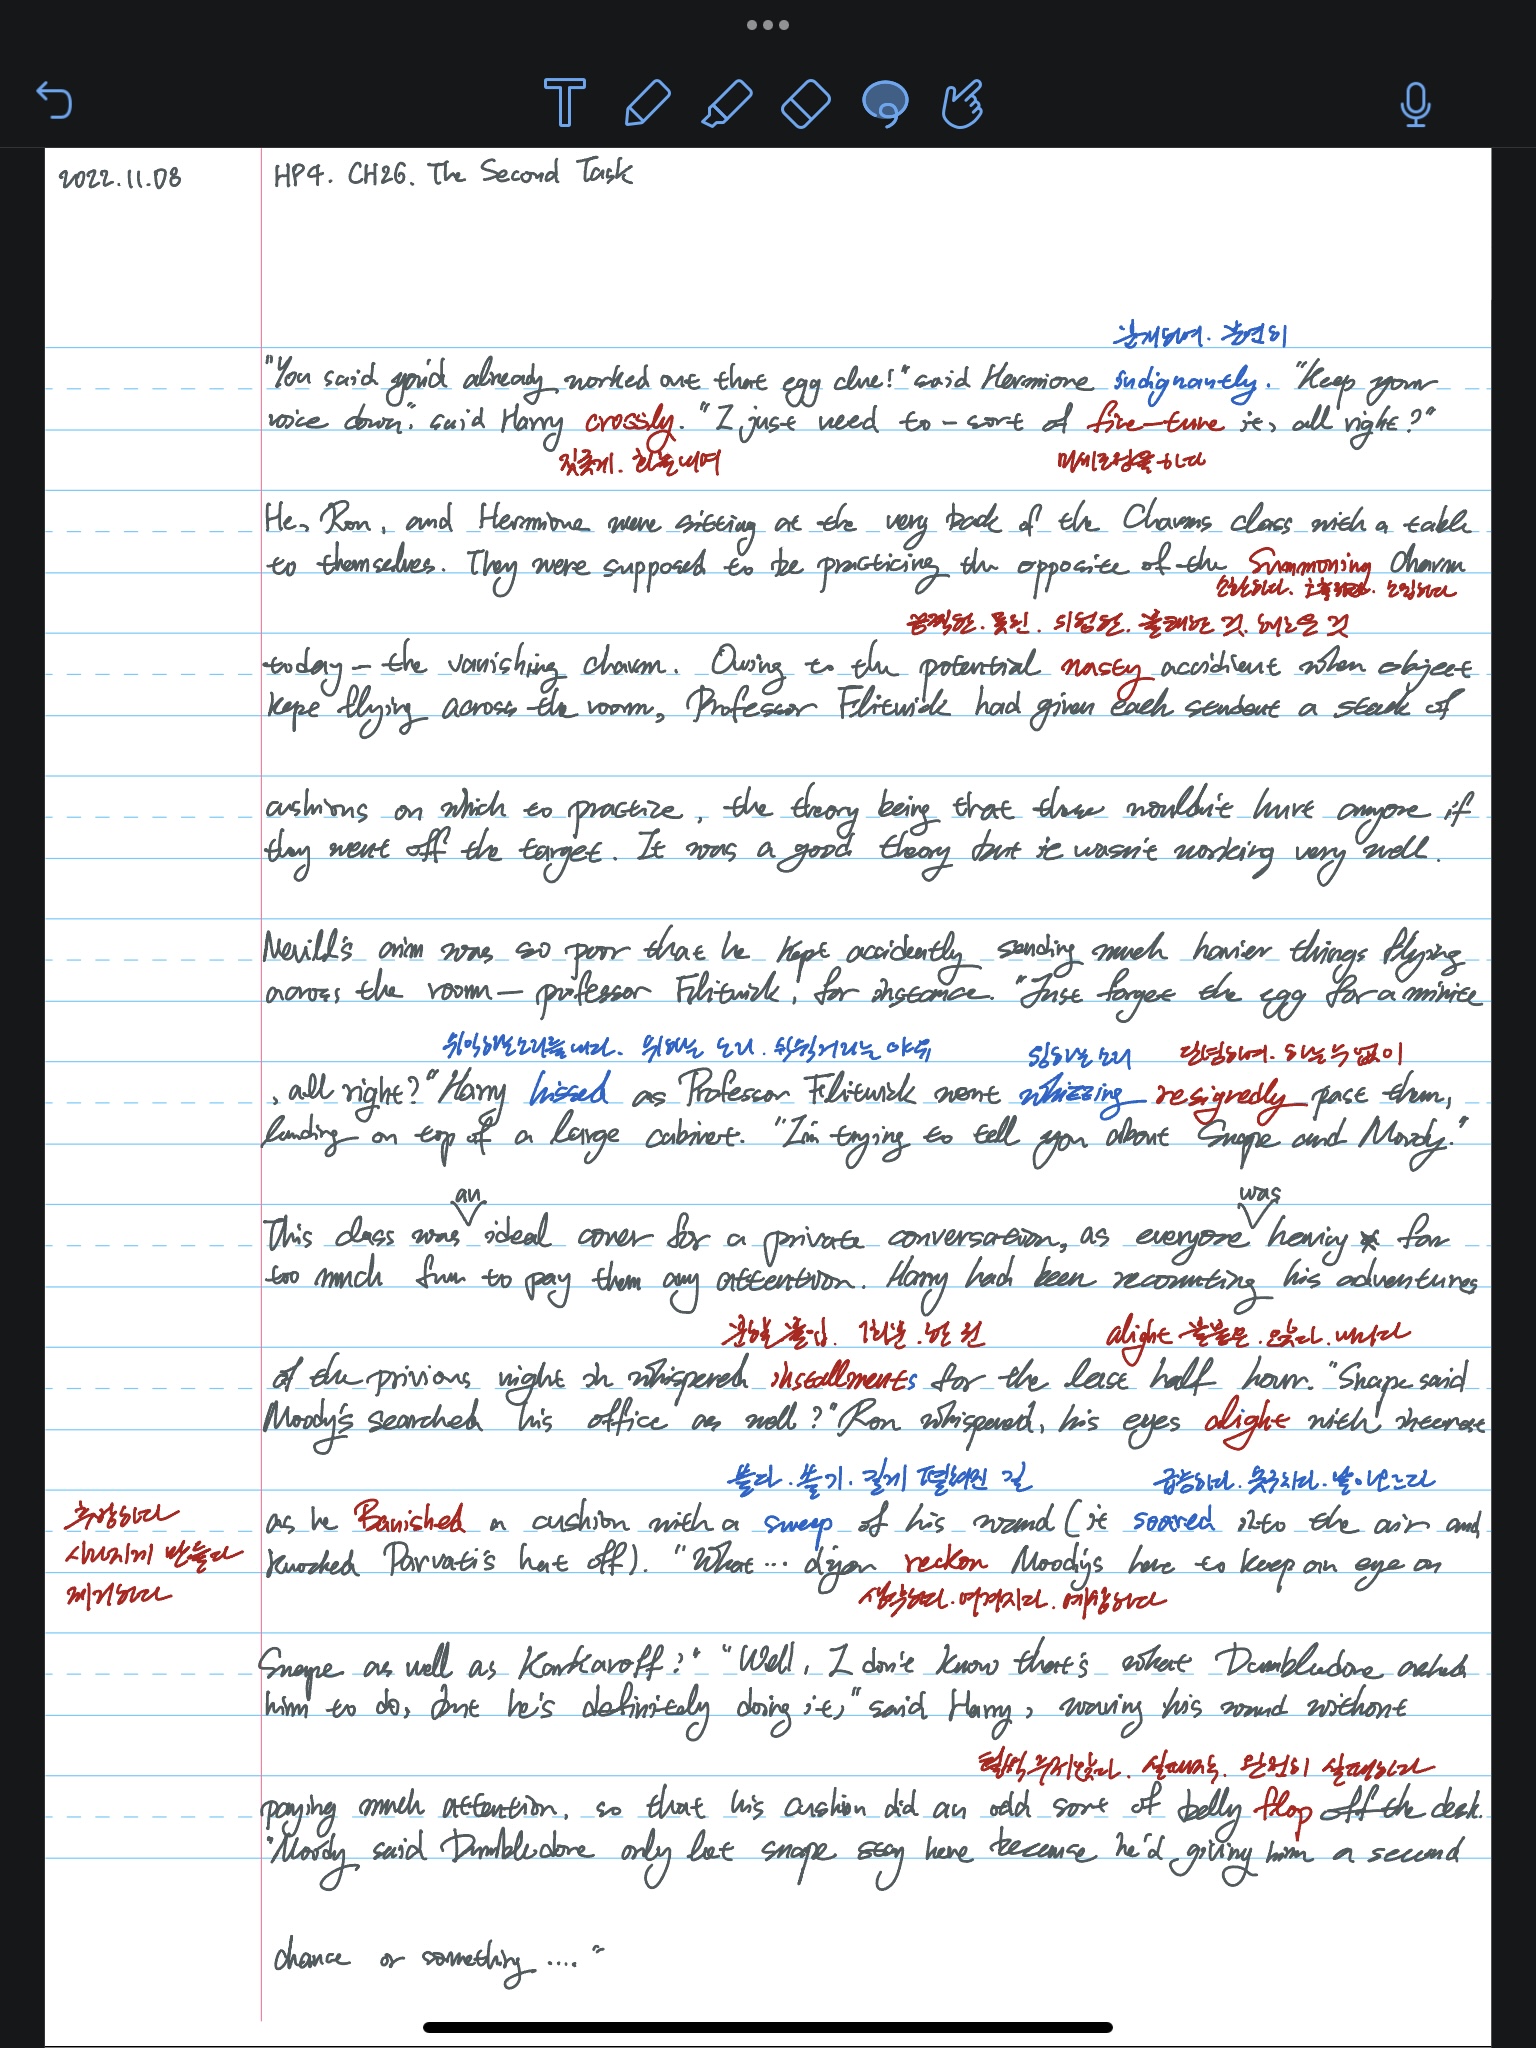 2022.11.08
HP4. CH26. The Second Task
분개하여. 분연히
"You said you'd already worked out that egg clue!" said Hermione indignantly. "Keep your
voice down," said Harry crossly. "I just need to – sort of fine-tune it, all right?"
짓궂게. 화를내며 미세조정을 하다
He, Ron, and Hermione were sitting at the very back of the Charms class with a table
to themselves. They were supposed to be practicing the opposite of the Summoning Charm
소환하다.
끔찍한. 못된. 위험한. 불쾌한 것.
today – the vanishing charm. Owing to the potential nasty accidient when object
kept flying across the room, Professor Flitwick had given each student a stack of
cushions on which to practize, the theory being that these wouldn't hurt anyone if
they went off the target. It was a good theory but it wasn't working very well.
Nevill's aim was so poor that he kept accidently sending much havier things flying
across the room – professor Flitwick, for instance. "Just forget the egg for a minite
쉬익하는소리를내다. 쉬하는 소리. 윙하는 소리 단념하여. 하는수없이
, all right?" Harry hissed as Professor Flitwick went whizzing resignedly past them,
landing on top of a large cabinet. "I'm trying to tell you about Snape and Moody."
an was
This class was ideal cover for a private conversation, as everyone having far
too much fun to pay them any attention. Harry had been recounting his adventures
분할불입. 1회분. 한 권 alight 불붙은. 앉다. 내리다
of the privious night in whispered installments for the last half hour. "Snape said
Moody's searched his office as well?" Ron whispered, his eyes alight with interest
쓸다. 쓸기. 길게 펼쳐진 길 급증하다. 솟구치다. 날아오르다
추방하다
as he Banished a cushion with a sweep of his wand (it soared into the air and
사라지게 만들다
knocked Parvati's hat off). "What... d'you reckon Moody's here to keep an eye on
제거하다
생각하다. 여겨지다. 예상하다
Snape as well as Karkaroff?" "Well, I don't know that's what Dumbledore asked
him to do, but he's definitely doing it," said Harry, waving his wand without
털썩 주저앉다. 실패작. 완전히 실패하다
paying much attention, so that his cushion did an odd sort of belly flop off the desk.
"Moody said Dumbledore only let snape stay here because he'd giving him a second
chance or something ...."